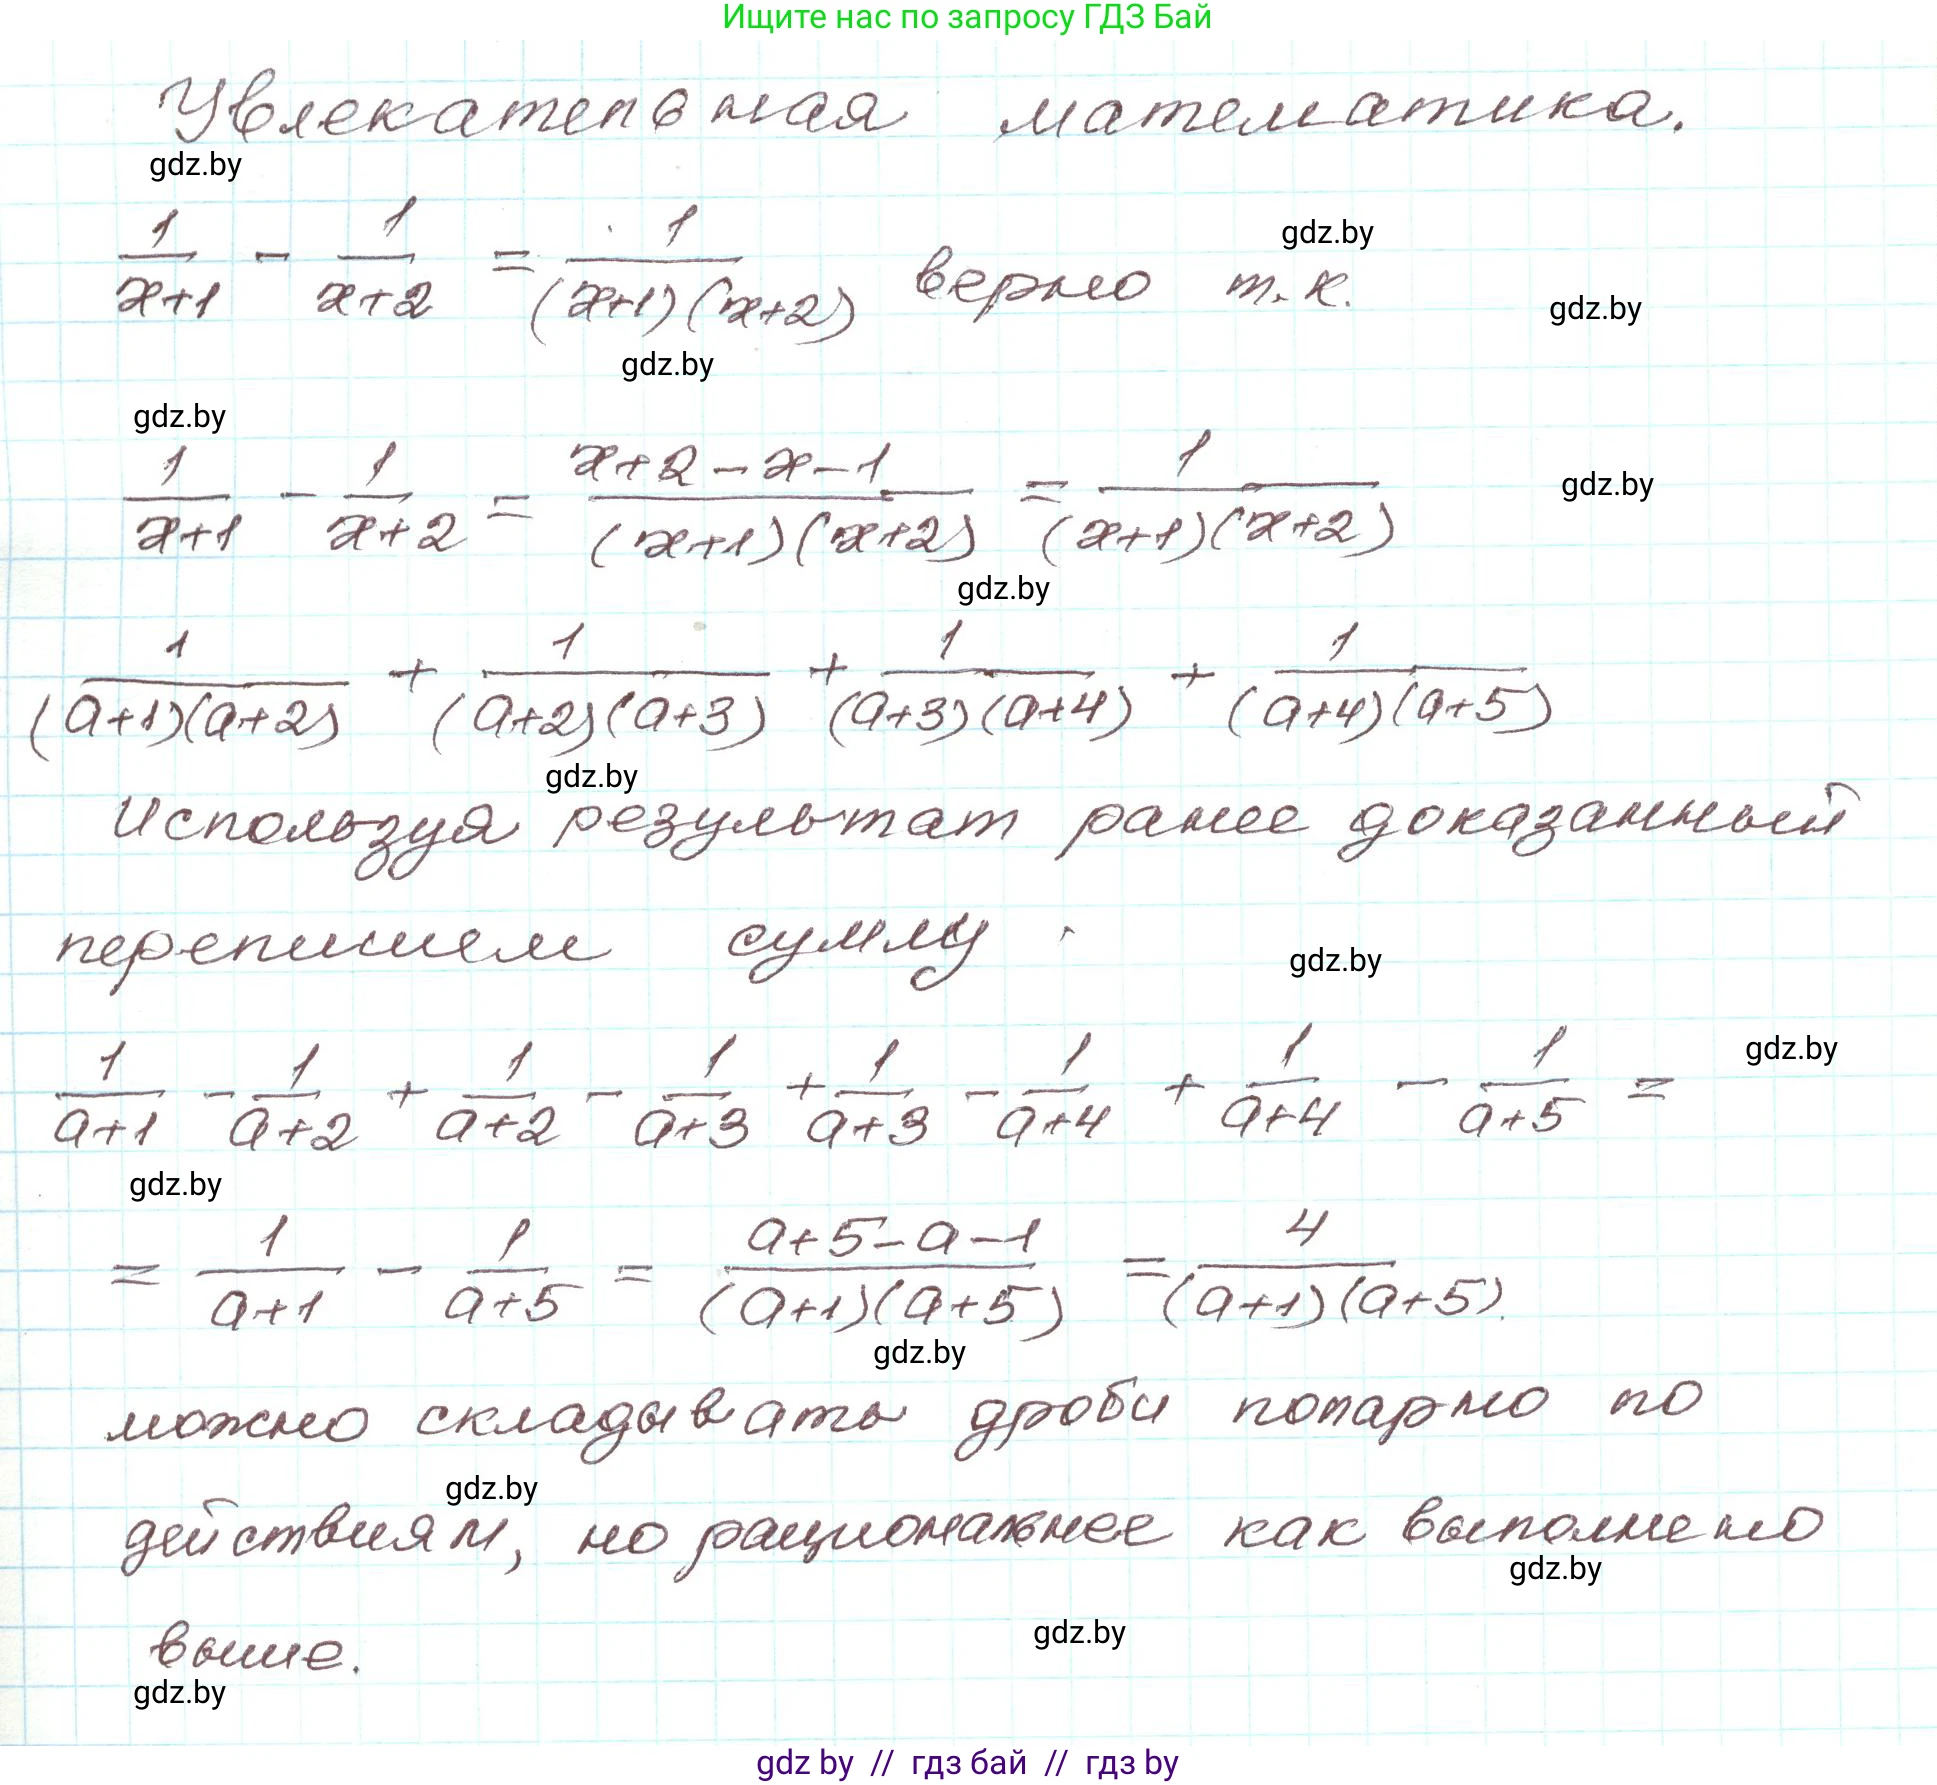 Ищите нас по запросу ГДЗ Бай
Увлекательная математика.
gdz.by
1/(x+1) - 1/(x+2) = 1/((x+1)(x+2)) верно т.к.
gdz.by
gdz.by
gdz.by
gdz.by
1/(x+1) - 1/(x+2) = (x+2-x-1)/((x+1)(x+2)) = 1/((x+1)(x+2))
gdz.by
gdz.by
1/((a+1)(a+2)) + 1/((a+2)(a+3)) + 1/((a+3)(a+4)) + 1/((a+4)(a+5))
gdz.by
Используя результат ранее доказанный
перепишем сумму
gdz.by
1/(a+1) - 1/(a+2) + 1/(a+2) - 1/(a+3) + 1/(a+3) - 1/(a+4) + 1/(a+4) - 1/(a+5) =
gdz.by
gdz.by
= 1/(a+1) - 1/(a+5) = (a+5-a-1)/((a+1)(a+5)) = 4/((a+1)(a+5)).
gdz.by
можно складывать дроби попарно по
gdz.by
действиям, но рациональнее как выполнено
gdz.by
выше.
gdz.by
gdz.by
gdz by // гдз бай // гдз by